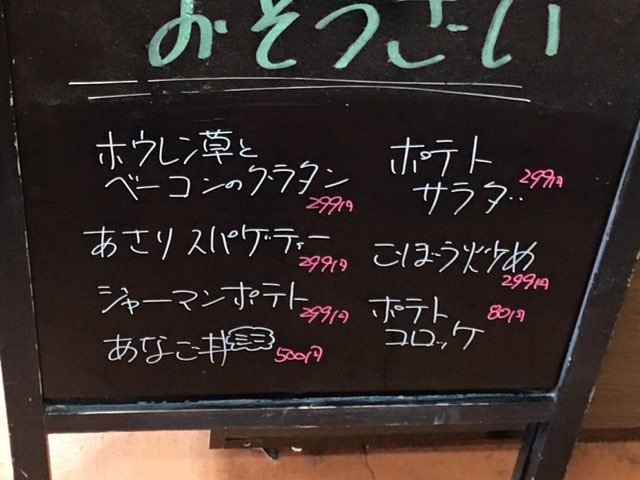 おそうざい
ホウレン草と
ベーコンのグラタン
299円
あさりスパゲッティー
299円
ジャーマンポテト
299円
あなご丼
500円
ポテト
サラダ
299円
ごぼう炒め
299円
ポテト
コロッケ
80円